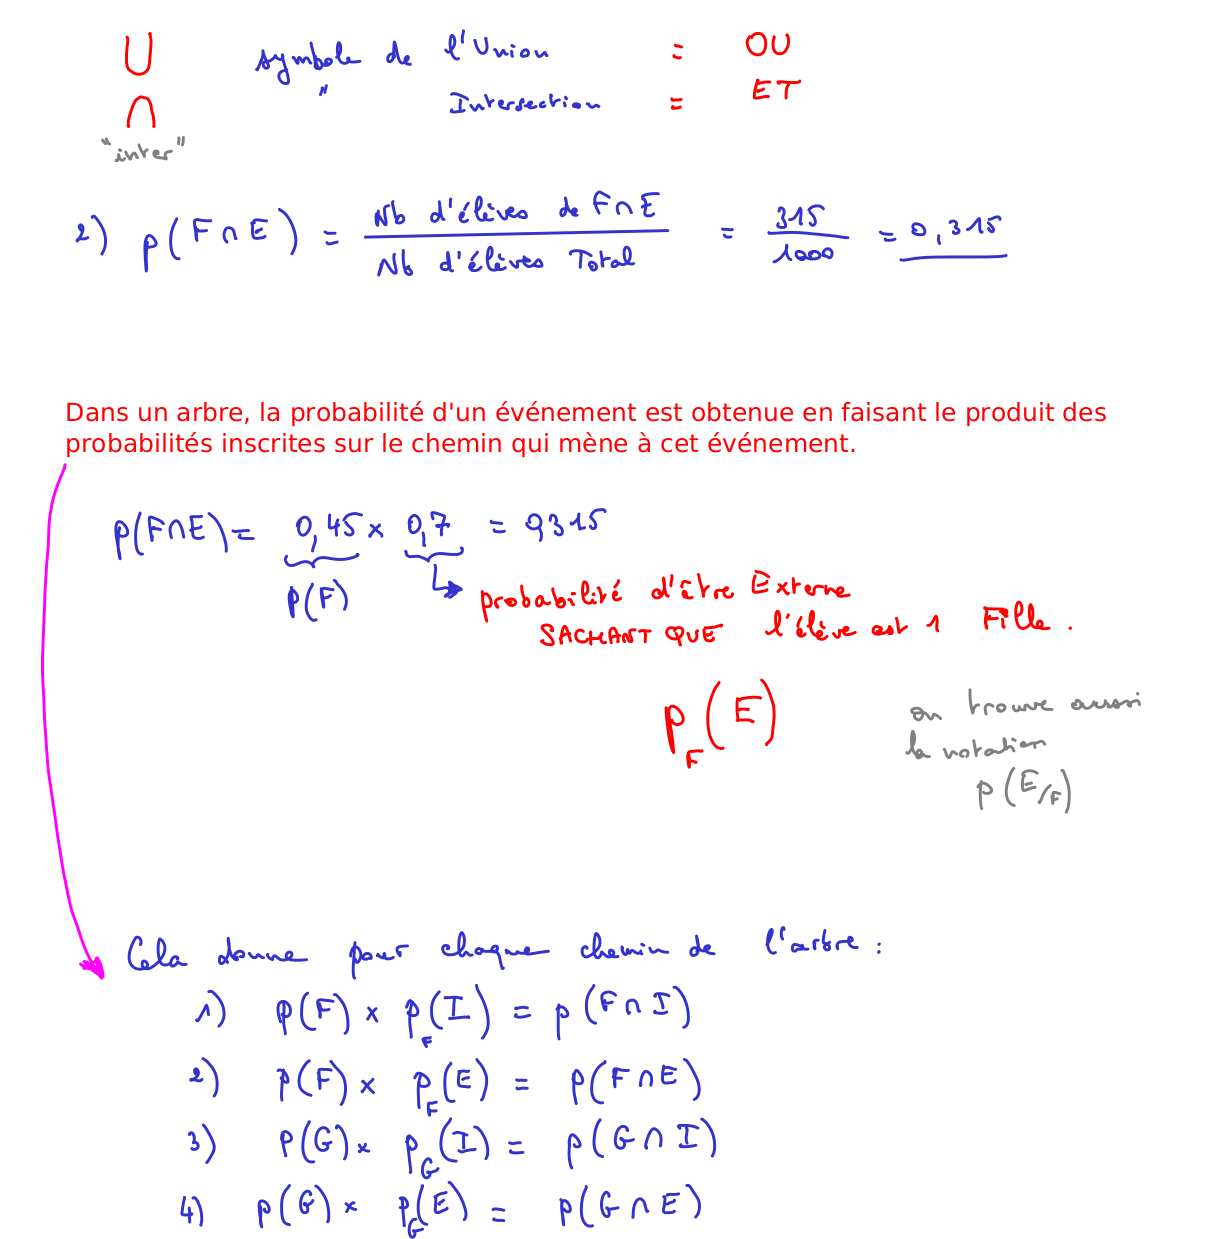 ∪ symbole de l'Union = OU
∩ " Intersection = ET
"inter"
2) p(F∩E) = Nb d'élèves de F∩E / Nb d'élèves Total = 315/1000 = 0,315
Dans un arbre, la probabilité d'un événement est obtenue en faisant le produit des
probabilités inscrites sur le chemin qui mène à cet événement.
p(F∩E) = 0,45 × 0,7 = 0,315
p(F)
probabilité d'être Externe
SACHANT QUE l'élève est 1 Fille.
p_F(E)
on trouve aussi
la notation
p(E/F)
Cela donne pour chaque chemin de l'arbre :
1) p(F) × p_F(I) = p(F∩I)
2) p(F) × p_F(E) = p(F∩E)
3) p(G) × p_G(I) = p(G∩I)
4) p(G) × p_G(E) = p(G∩E)